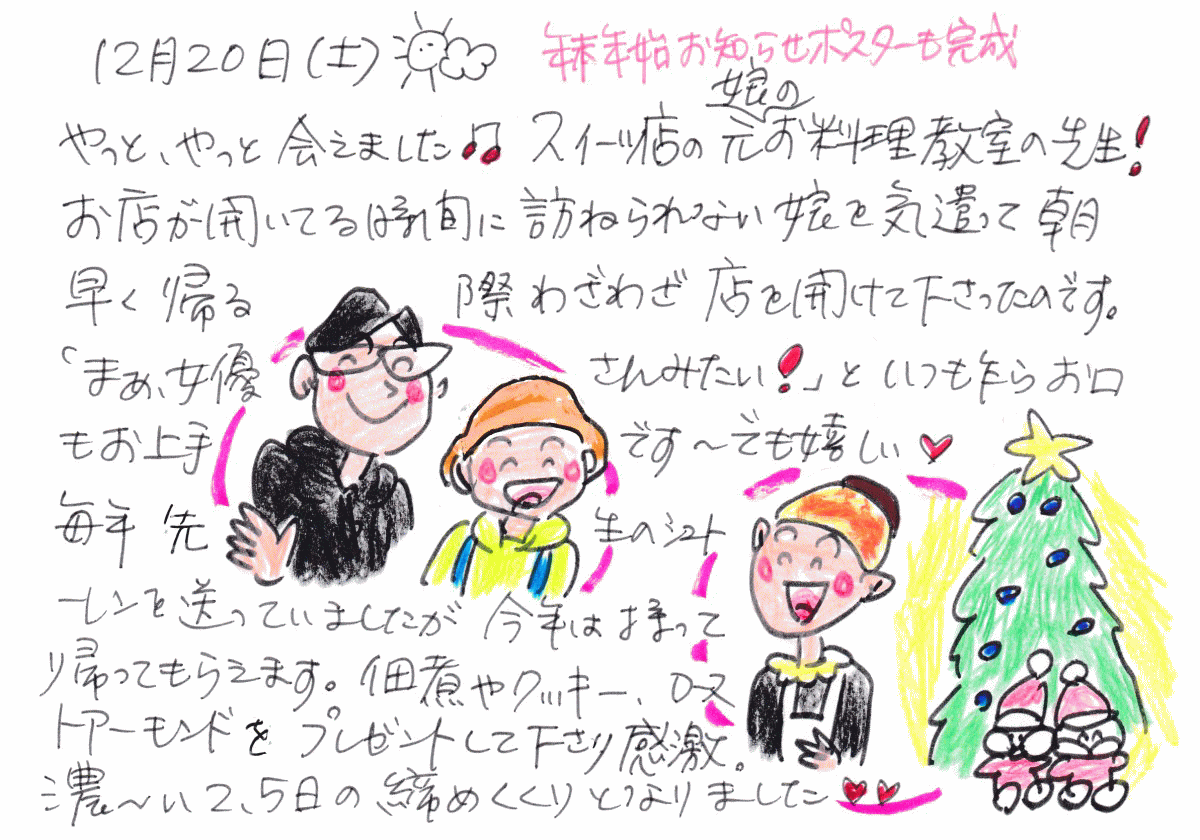 12月20日(土)
年末年始お知らせポスターも完成
娘の
やっと、やっと会えました♫ スイーツ店の元お料理教室の先生!
お店が開いてる時間に訪ねられない娘を気遣って朝
早く帰る際わざわざ店を開けて下さったのです。
「まあ、女優さんみたい!」といつも乍らお口
もお上手です〜でも嬉しい♥
毎年先生のシュト
ーレンを送っていましたが今年は持って
帰ってもらえます。佃煮やクッキー、ロース
トアーモンドをプレゼントして下さり感激。
濃〜い2、5日の締めくくりとなりました♥♥